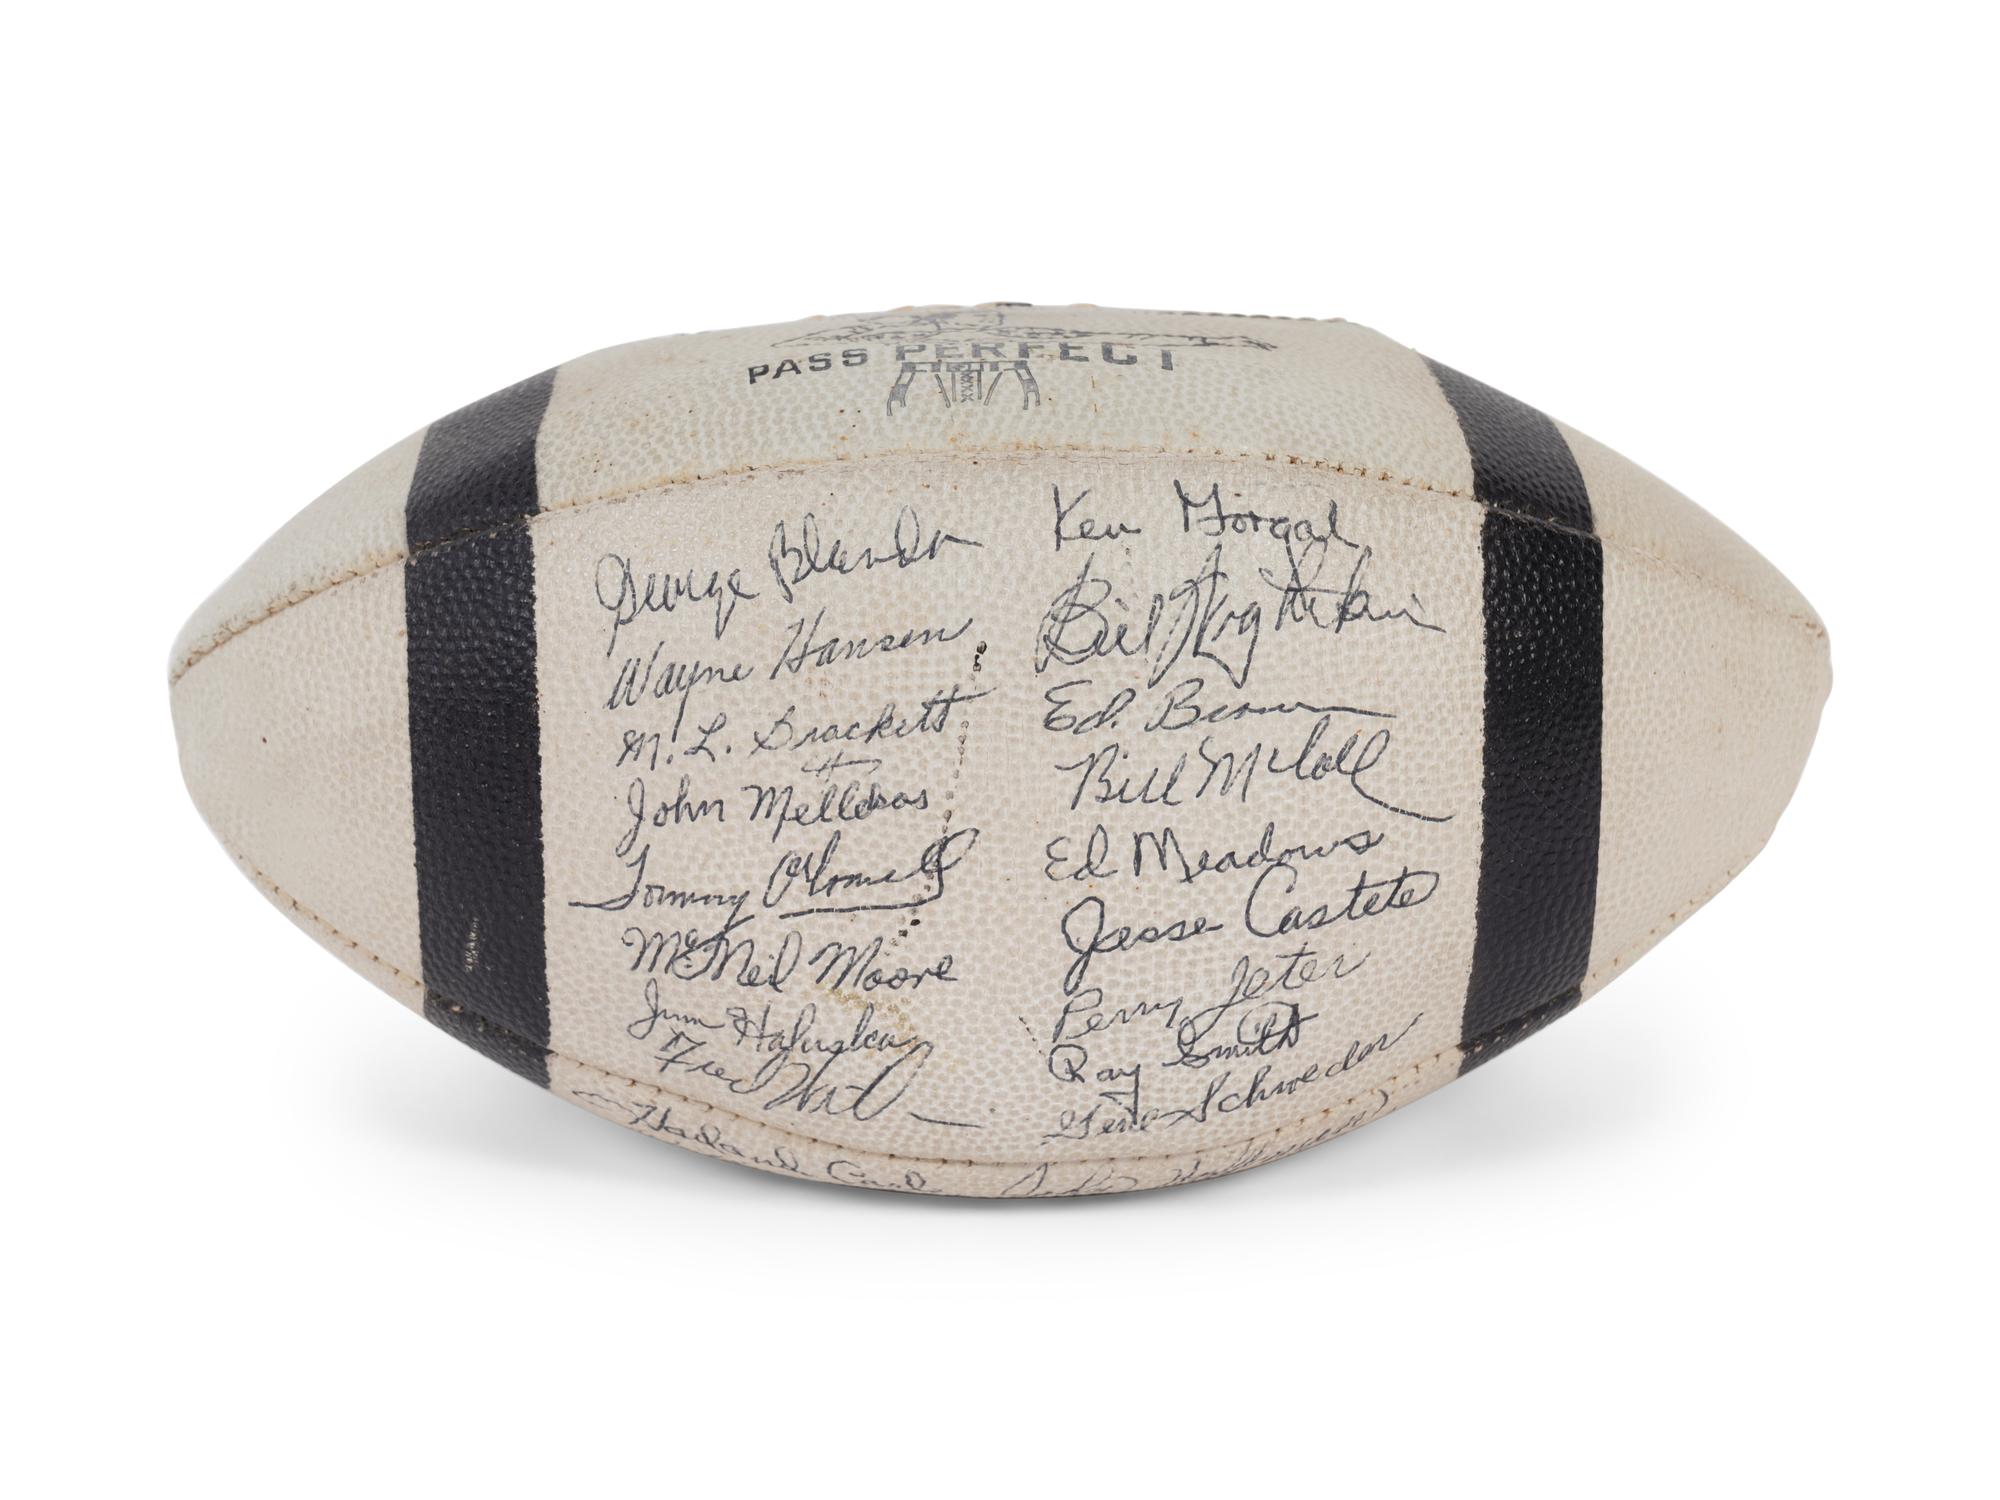 PASS PERFECT
George Blanda
Wayne Hansen
M. L. Brackett
John Mellekas
Tommy O'Connell
McNeil Moore
Jim Haluska
Fred Williams
Ken Gorgal
Bill Wightkin
Ed. Brown
Bill McColl
Ed Meadows
Jesse Castete
Perry Jeter
Ray Smith
Gene Schroeder
Harland Carl